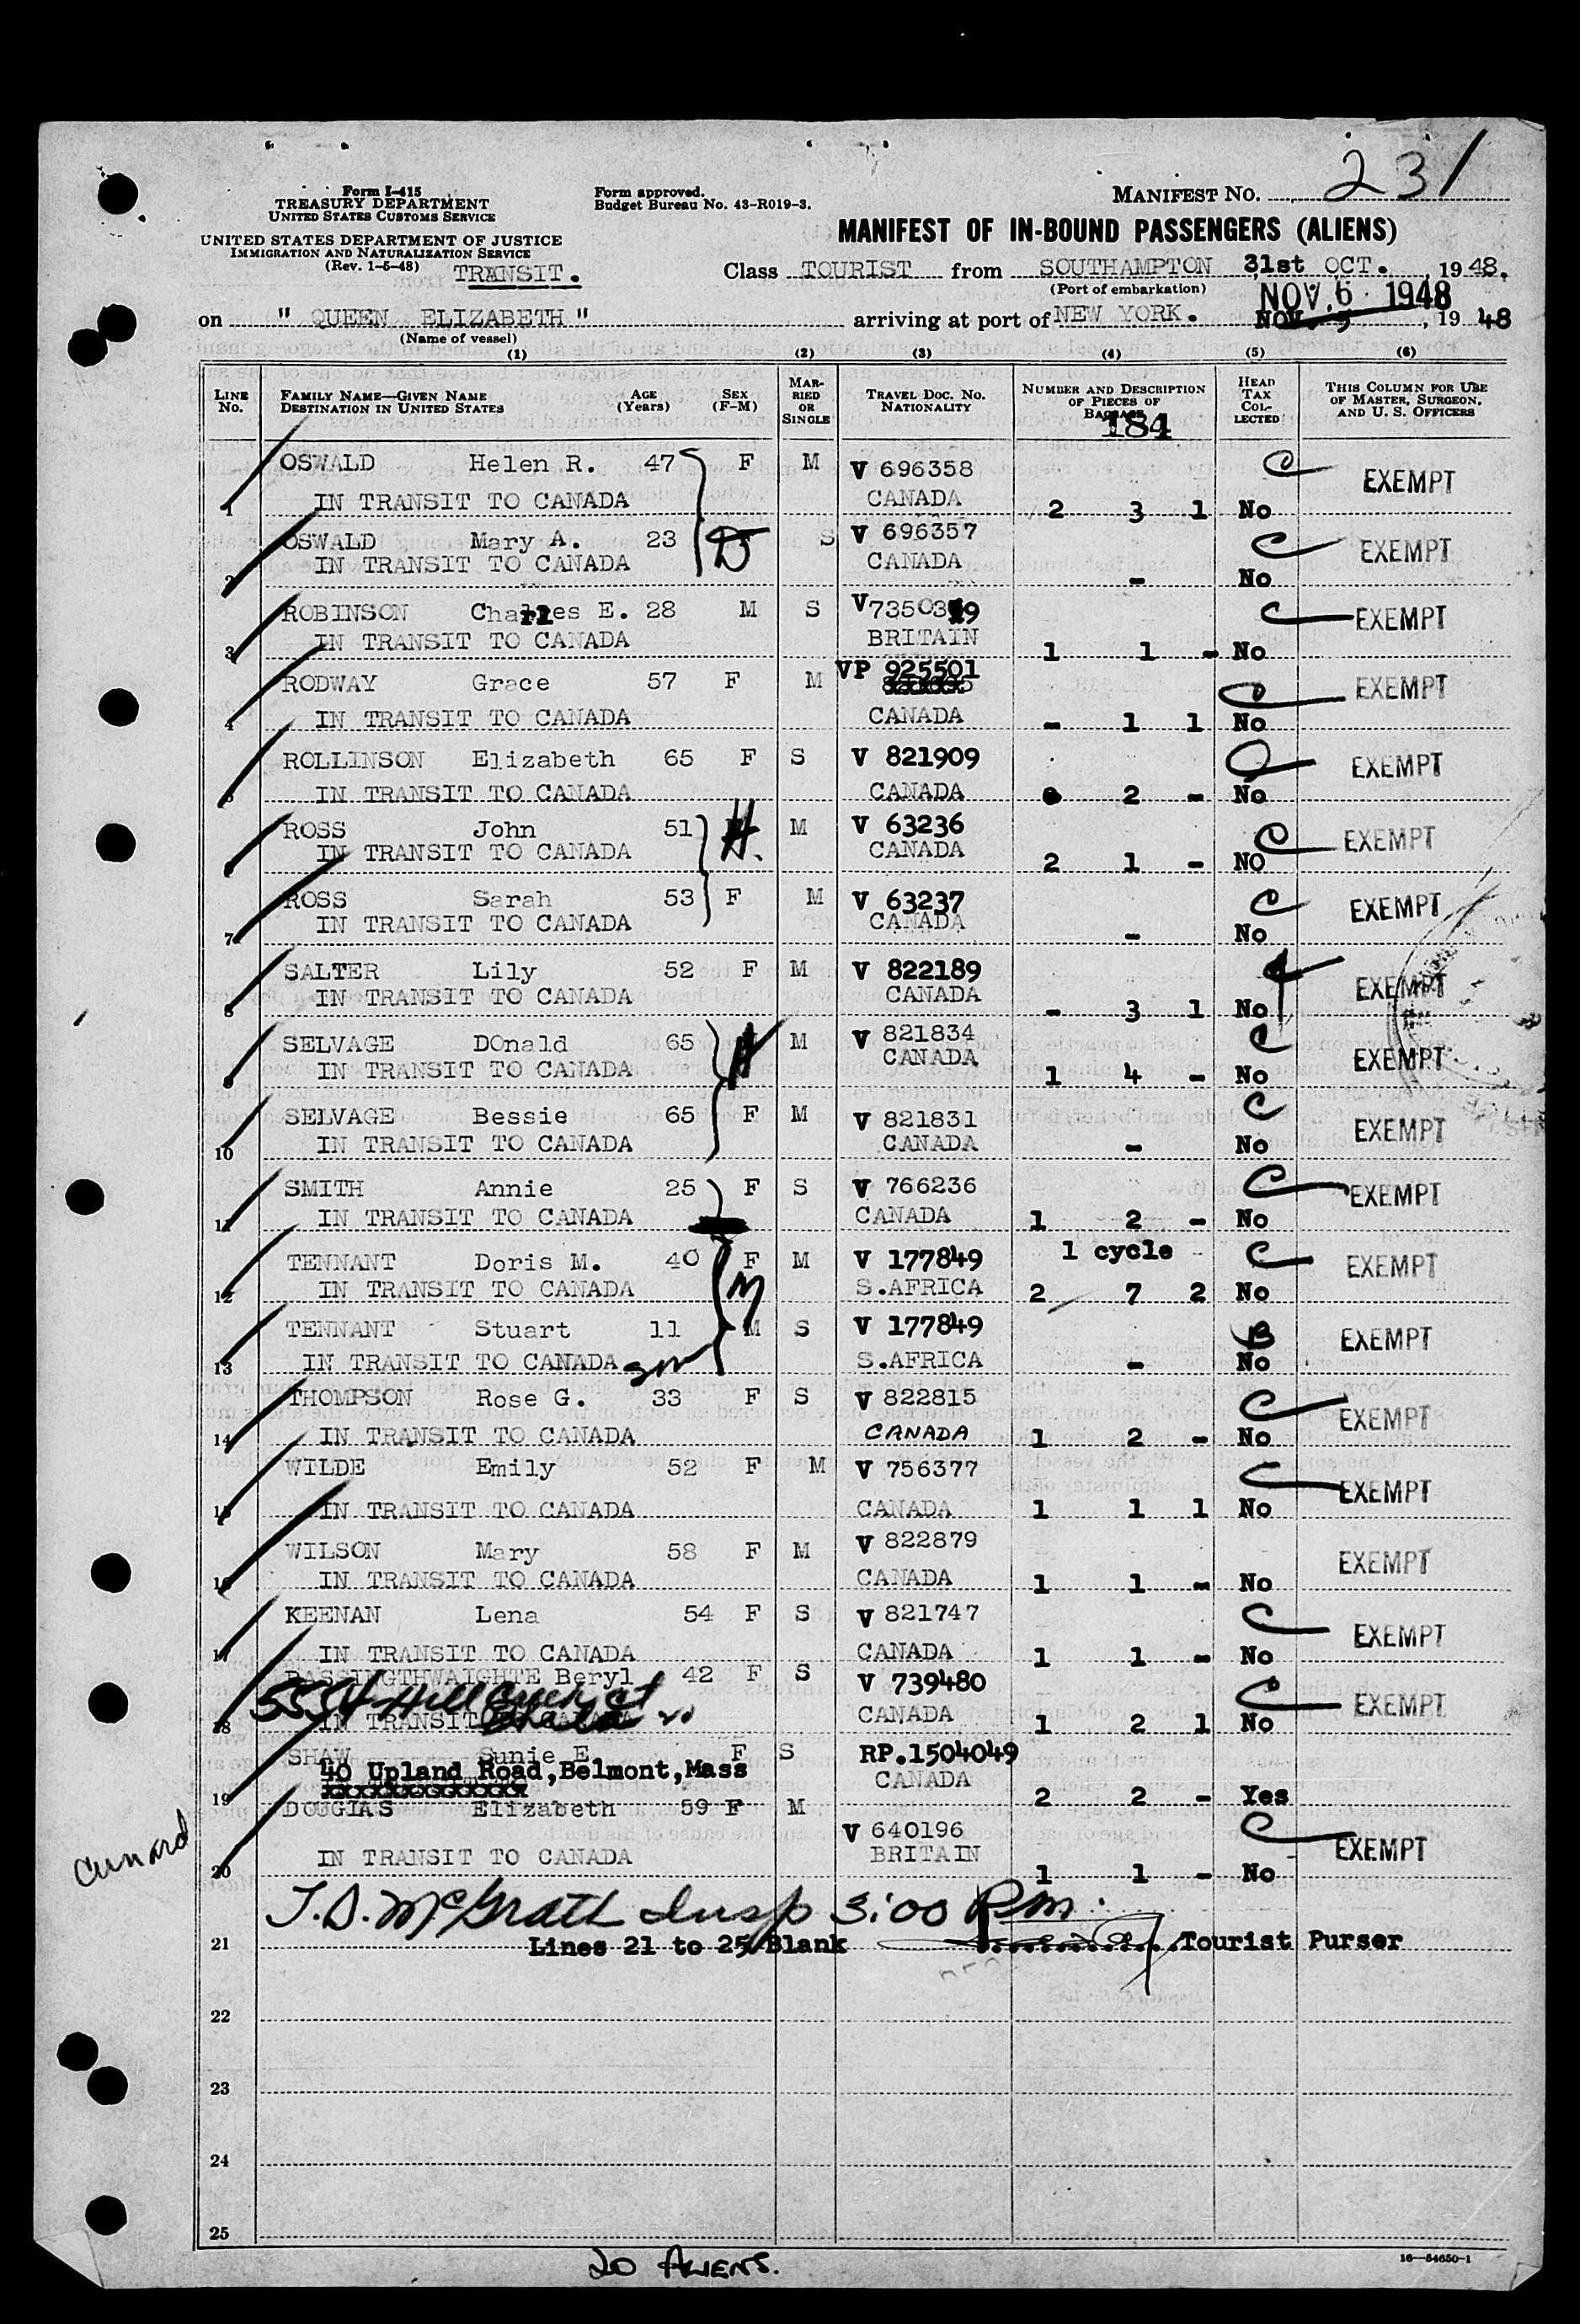 231
Form I-415
TREASURY DEPARTMENT
UNITED STATES CUSTOMS SERVICE
Form approved.
Budget Bureau No. 43-R019-3.
MANIFEST NO.
UNITED STATES DEPARTMENT OF JUSTICE
IMMIGRATION AND NATURALIZATION SERVICE
(Rev. 1-5-48) TRANSIT.
MANIFEST OF IN-BOUND PASSENGERS (ALIENS)
Class TOURIST from SOUTHAMPTON 31st OCT., 1948.
(Port of embarkation)
NOV. 6 1948
on "QUEEN ELIZABETH" arriving at port of NEW YORK. NOV. 5, 1948
(Name of vessel)
(1) (2) (3) (4) (5) (6)
LINE No. FAMILY NAME—GIVEN NAME DESTINATION IN UNITED STATES AGE (Years) SEX (F-M) MARRIED OR SINGLE TRAVEL DOC. NO. NATIONALITY NUMBER AND DESCRIPTION OF PIECES OF BAGGAGE HEAD TAX COLLECTED THIS COLUMN FOR USE OF MASTER, SURGEON, AND U. S. OFFICERS
184
OSWALD Helen R. 47 F M V 696358 C EXEMPT
1 IN TRANSIT TO CANADA CANADA 2 3 1 No
OSWALD Mary A. 23 D S V 696357 C EXEMPT
2 IN TRANSIT TO CANADA CANADA - No
ROBINSON Charles E. 28 M S C EXEMPT
3 IN TRANSIT TO CANADA BRITAIN 1 1 - No
RODWAY Grace 57 F M VP 925501 EXEMPT
4 IN TRANSIT TO CANADA CANADA - 1 1 No
ROLLINSON Elizabeth 65 F S V 821909 EXEMPT
5 IN TRANSIT TO CANADA CANADA 2 - No
ROSS John 51 H. M V 63236 C EXEMPT
6 IN TRANSIT TO CANADA CANADA 2 1 - NO
ROSS Sarah 53 F M V 63237 C EXEMPT
7 IN TRANSIT TO CANADA CANADA - No
SALTER Lily 52 F M V 822189 EXEMPT
8 IN TRANSIT TO CANADA CANADA - 3 1 No
SELVAGE DOnald 65 H M V 821834 C EXEMPT
9 IN TRANSIT TO CANADA CANADA 1 4 - No
SELVAGE Bessie 65 F M V 821831 C EXEMPT
10 IN TRANSIT TO CANADA CANADA - No
SMITH Annie 25 F S V 766236 C EXEMPT
11 IN TRANSIT TO CANADA CANADA 1 2 - No
TENNANT Doris M. 40 F M V 177849 1 cycle C EXEMPT
12 IN TRANSIT TO CANADA M S.AFRICA 2 7 2 No
TENNANT Stuart 11 M S V 177849 B EXEMPT
13 IN TRANSIT TO CANADA son S.AFRICA - No
THOMPSON Rose G. 33 F S V 822815 C EXEMPT
14 IN TRANSIT TO CANADA CANADA 1 2 - No
WILDE Emily 52 F M V 756377 C EXEMPT
15 IN TRANSIT TO CANADA CANADA 1 1 1 No
WILSON Mary 58 F M V 822879 EXEMPT
16 IN TRANSIT TO CANADA CANADA 1 1 - No
KEENAN Lena 54 F S V 821747 C EXEMPT
17 IN TRANSIT TO CANADA CANADA 1 1 - No
BASSINGTHWAIGHTE Beryl 42 F S V 739480 C EXEMPT
5554 Hill
18 IN TRANSIT CANADA 1 2 1 No
SHAW Sunie E. F S RP.1504049
40 Upland Road, Belmont, Mass CANADA
19 2 2 - Yes
DOUGLAS Elizabeth 59 F M V 640196 C EXEMPT
20 IN TRANSIT TO CANADA BRITAIN 1 1 - No
Cunard
T.D. McGrath Insp 3:00 Pm.
21 Lines 21 to 25 Blank Tourist Purser
22
23
24
25
20 ALIENS.
16—54650-1